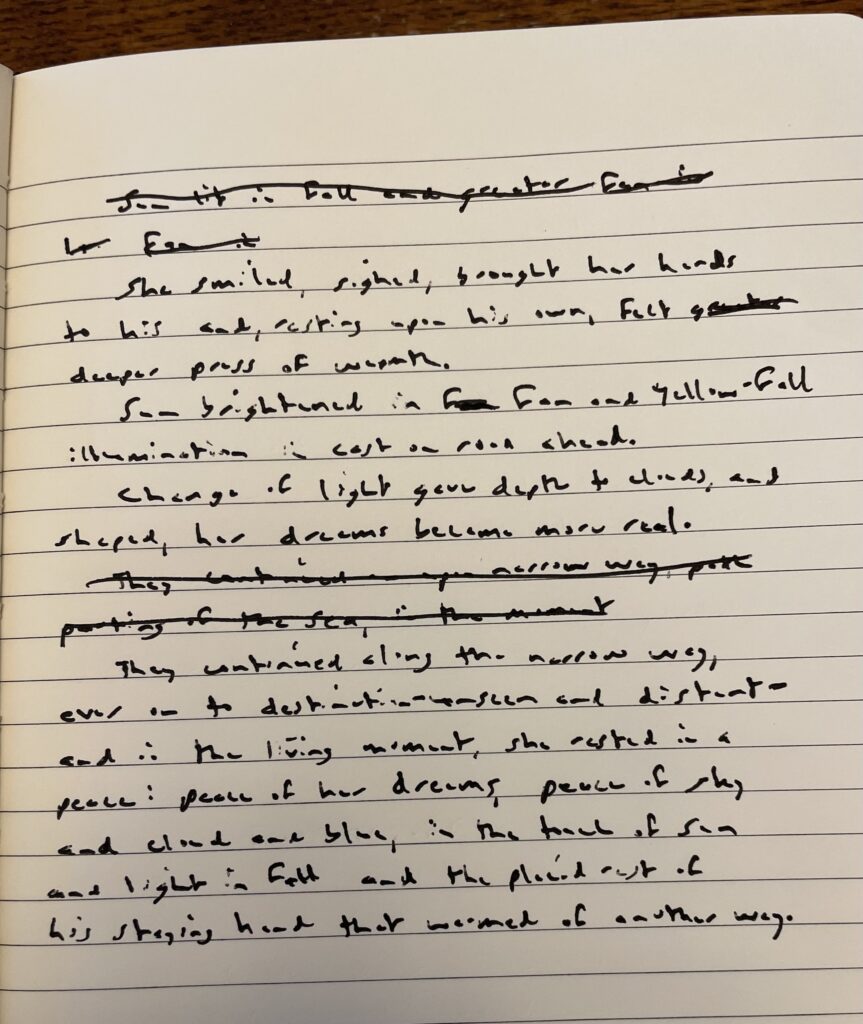 Sun lit in Fall and greater
She smiled, sighed, brought her hands
to his and, resting upon his own, felt
deeper press of warmth.
Sun brightened in and yellow-Fall
illumination is cast on road ahead.
Change of light gave depth to clouds, and
shaped, her dreams became more real.
They continued upon narrow way, past
parting of the sea, in the moment
They continued along the narrow way,
ever on to destination-unseen and distant-
and in the living moment, she rested in a
peace: peace of her dreams, peace of sky
and cloud and blue, in the touch of sun
and light in Fall and the placid rest of
his staying hand that warmed of another way.